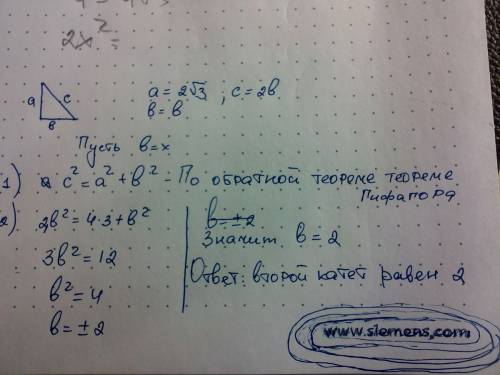 2x² =
a
c
в
a = 2√3 ; c = 2в
в = в
Пусть в = x
1) c² = a² + в² - По обратной теореме теореме
Пифагора
2) 2в² = 4·3 + в²
3в² = 12
в² = 4
в = ± 2
в = ± 2
Значит в = 2
Ответ: второй катет равен 2
www.slemens,com